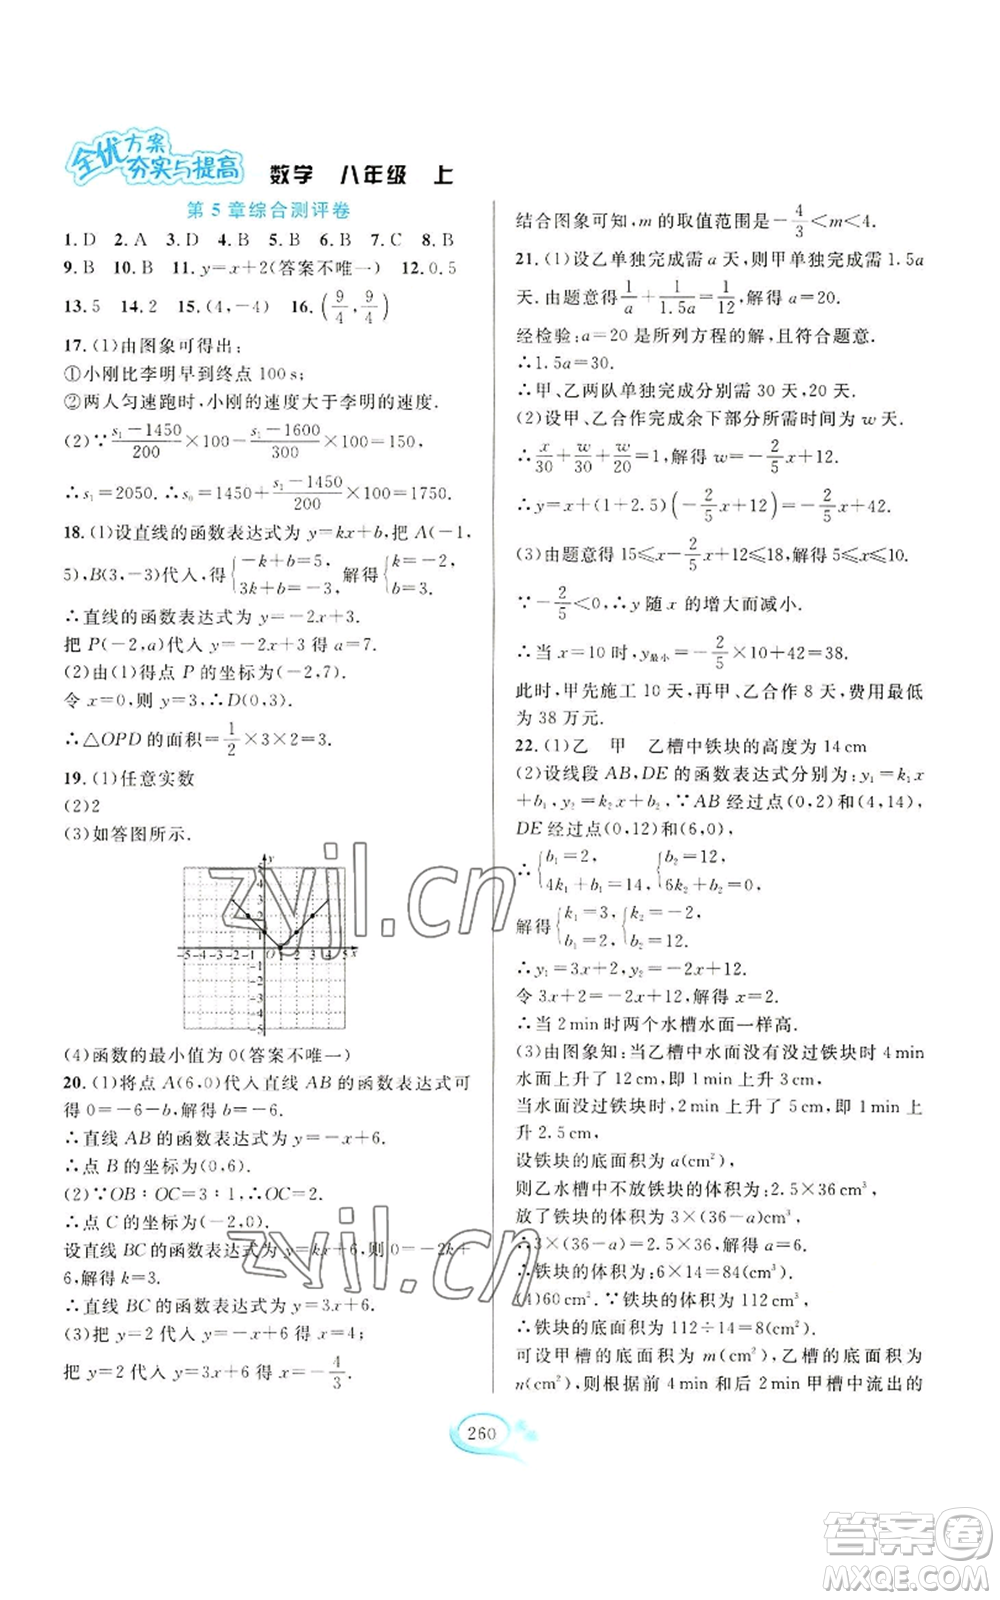 全优方案
夯实与提高 数学 八年级 上
第5章综合测评卷
1.D 2.A 3.D 4.B 5.B 6.B 7.C 8.B
9.B 10.B 11.y=x+2(答案不唯一) 12.0.5
13.5 14.2 15.(4,-4) 16.(9/4,9/4)
17.(1)由图象可得出:
①小刚比李明早到终点100 s;
②两人匀速跑时,小刚的速度大于李明的速度.
(2)∵(s₁-1450)/200×100-(s₁-1600)/300×100=150,
∴s₁=2050.∴s₀=1450+(s₁-1450)/200×100=1750.
18.(1)设直线的函数表达式为y=kx+b,把A(-1,
5),B(3,-3)代入,得{-k+b=5,3k+b=-3,解得{k=-2,b=3.
∴直线的函数表达式为y=-2x+3.
把P(-2,a)代入y=-2x+3得a=7.
(2)由(1)得点P的坐标为(-2,7).
令x=0,则y=3,∴D(0,3).
∴△OPD的面积=1/2×3×2=3.
19.(1)任意实数
(2)2
(3)如答图所示.
y
5
4
3
2
1
-5-4-3-2-1 O 1 2 3 4 5 x
-1
-2
-3
-4
-5
(4)函数的最小值为0(答案不唯一)
20.(1)将点A(6,0)代入直线AB的函数表达式可
得0=-6-b,解得b=-6.
∴直线AB的函数表达式为y=-x+6.
∴点B的坐标为(0,6).
(2)∵OB∶OC=3∶1,∴OC=2.
∴点C的坐标为(-2,0).
设直线BC的函数表达式为y=kx+6,则0=-2k+
6,解得k=3.
∴直线BC的函数表达式为y=3x+6.
(3)把y=2代入y=-x+6得x=4;
把y=2代入y=3x+6得x=-4/3.
结合图象可知,m的取值范围是-4/3<m<4.
21.(1)设乙单独完成需a天,则甲单独完成需1.5a
天.由题意得1/a+1/1.5a=1/12,解得a=20.
经检验:a=20是所列方程的解,且符合题意.
∴1.5a=30.
∴甲、乙两队单独完成分别需30天,20天.
(2)设甲、乙合作完成余下部分所需时间为w天.
∴x/30+w/30+w/20=1,解得w=-2/5x+12.
∴y=x+(1+2.5)(-2/5x+12)=-2/5x+42.
(3)由题意得15≤x-2/5x+12≤18,解得5≤x≤10.
∵-2/5<0,∴y随x的增大而减小.
∴当x=10时,y最小=-2/5×10+42=38.
此时,甲先施工10天,再甲、乙合作8天,费用最低
为38万元.
22.(1)乙 甲 乙槽中铁块的高度为14 cm
(2)设线段AB,DE的函数表达式分别为:y₁=k₁x
+b₁,y₂=k₂x+b₂,∵AB经过点(0,2)和(4,14),
DE经过点(0,12)和(6,0),
∴{b₁=2,4k₁+b₁=14, {b₂=12,6k₂+b₂=0,
解得{k₁=3,b₁=2, {k₂=-2,b₂=12,
∴y₁=3x+2,y₂=-2x+12.
令3x+2=-2x+12,解得x=2.
∴当2 min时两个水槽水面一样高.
(3)由图象知:当乙槽中水面没过铁块时4 min
水面上升了12 cm,即1 min上升3 cm,
当水面没过铁块时,2 min上升了5 cm,即1 min上
升2.5 cm,
设铁块的底面积为a(cm²),
则乙水槽中不放铁块的体积为:2.5×36 cm³,
放了铁块的体积为3×(36-a)cm³,
∴3×(36-a)=2.5×36,解得a=6,
∴铁块的体积为:6×14=84(cm³).
(4)60 cm².∵铁块的体积为112 cm³,
∴铁块的底面积为112÷14=8(cm²).
可设甲槽的底面积为m(cm²),乙槽的底面积为
n(cm²),则根据前4 min和后2 min甲槽中流出的
260
zyjl.cn
zyjl.cn
答案圈
MXQE.COM